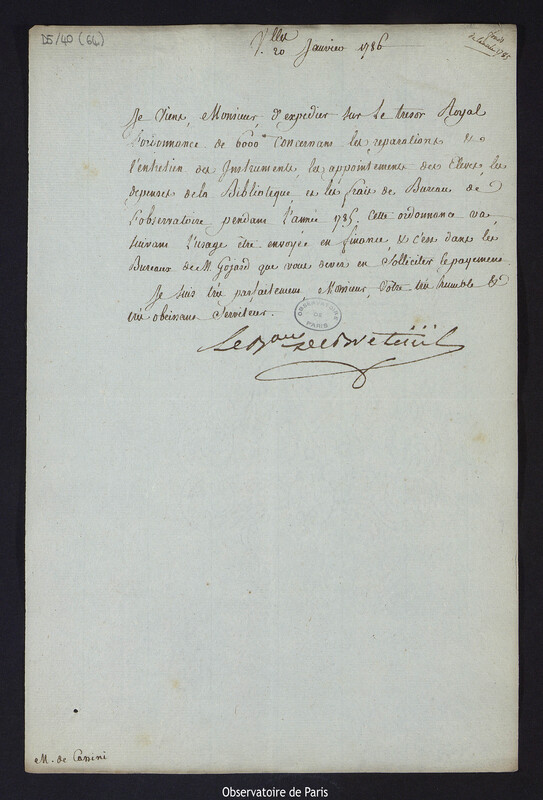 D5/40 (64)
fonds
de l'année 1785
V.lles
20 Janvier 1786
Je viens, Monsieur, d'expedier sur le tresor Royal
l'ordonnance de 6000 concernant les reparations &
l'entretien des Instruments, les appointements des Eleves, les
depenses de la Biblioteque, et les frais de Bureau de
l'observatoire pendant l'année 1785. Cette ordonnance va,
suivant l'usage être envoyée en finance, & c'est dans les
Bureaux de M. Gojard que vous devez en solliciter le payement.
Je suis très parfaitement Monsieur, Votre très humble &
très obeissant Serviteur.
OBSERVATOIRE
DE
PARIS
Le Bon de Breteüil
M. de Cassini
Observatoire de Paris